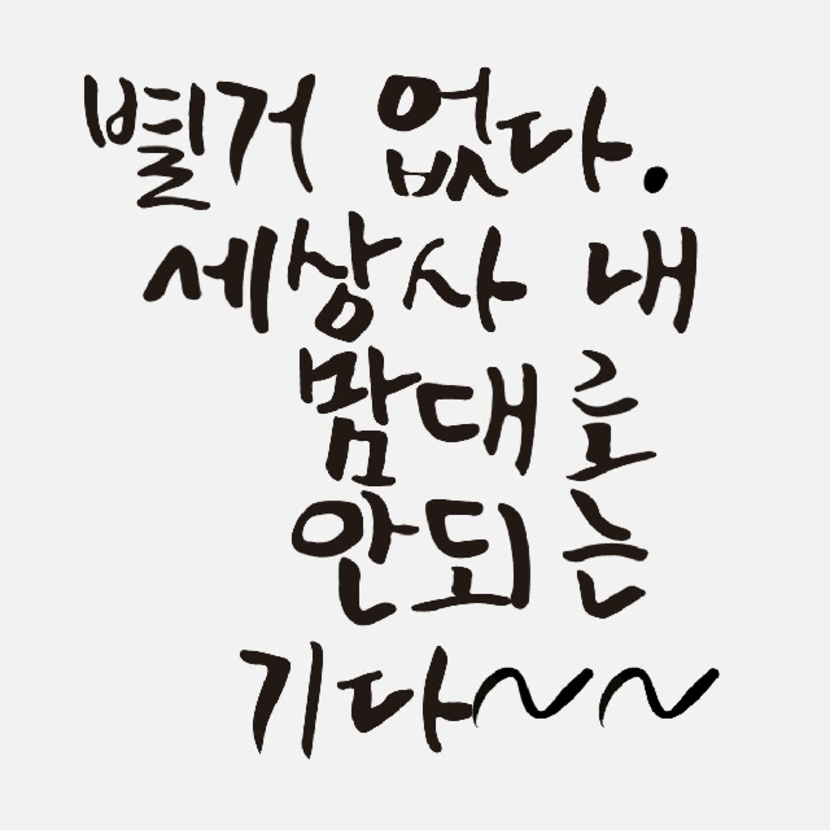 별거 없다.
세상사 내
맘대로
안되는
기다~~